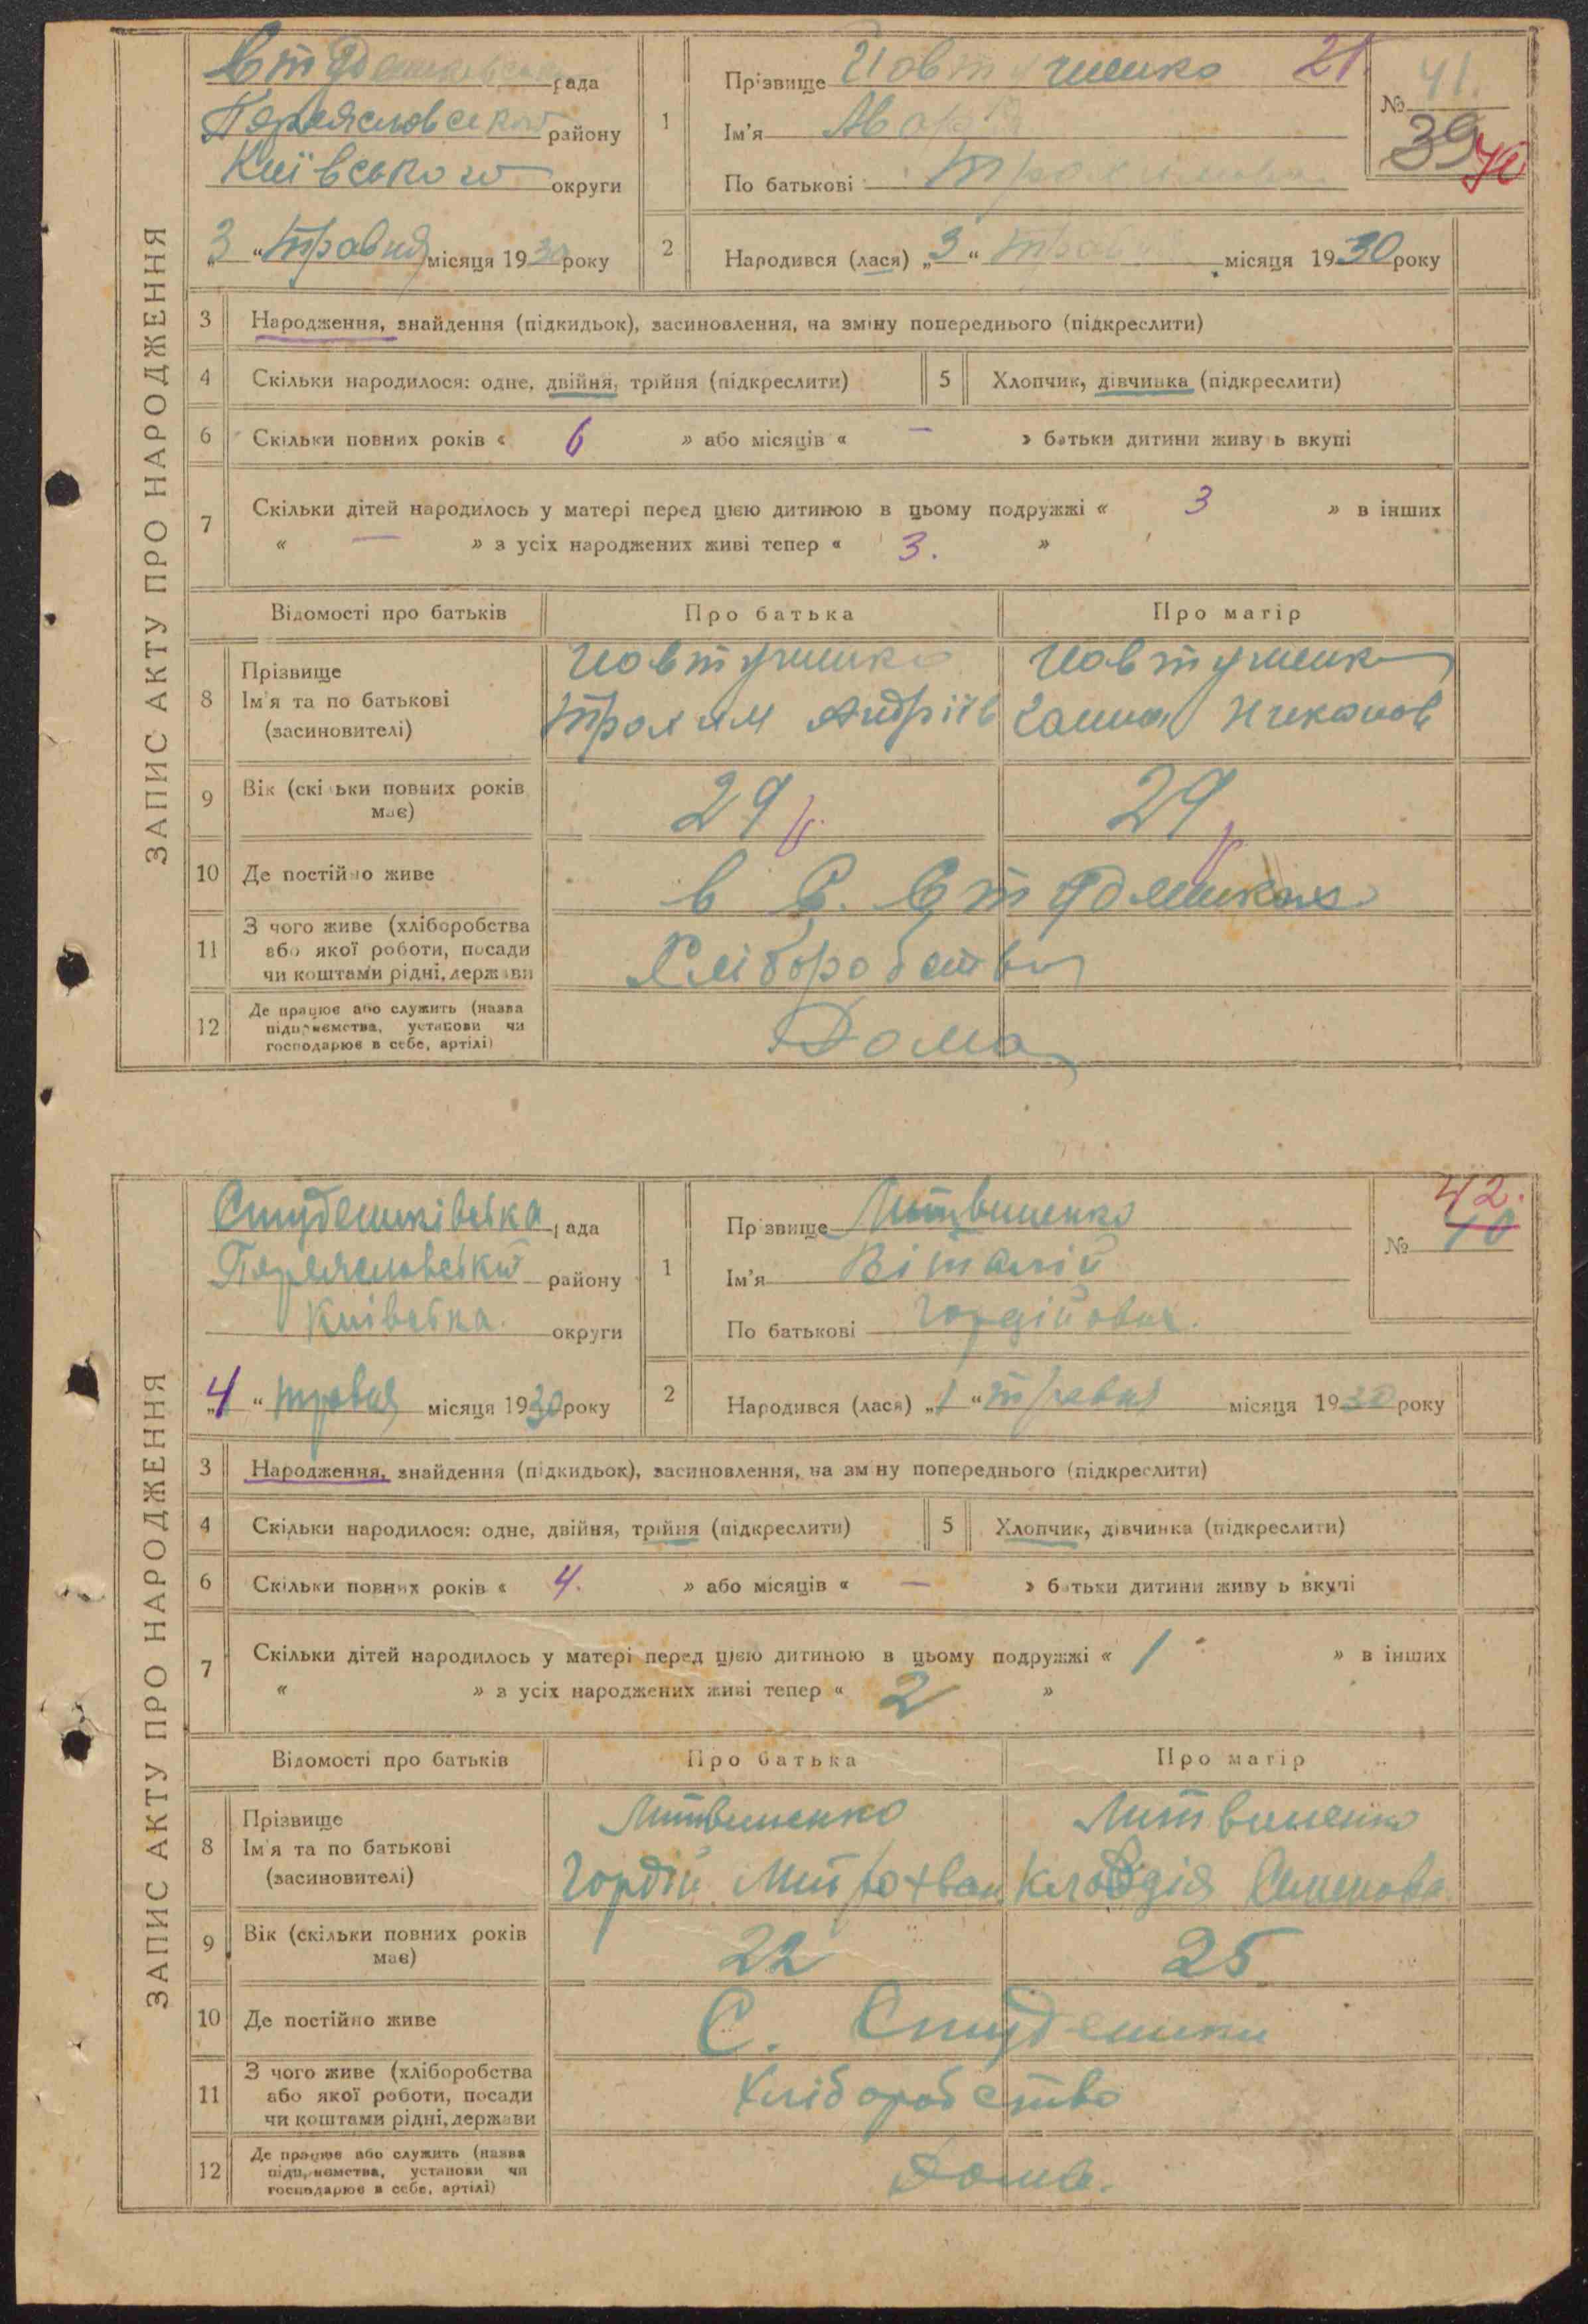 ЗАПИС АКТУ ПРО НАРОДЖЕННЯ
рада
району
Київською округи
„3“ травня місяця 1930 року
1
Прізвище Иовтушенко 21
Ім'я
По батькові
№ 41.
39 40
2
Народився (лася) „3“ травня місяця 1930 року
3 Народження, знайдення (підкидьок), засиновлення, на зміну попереднього (підкреслити)
4 Скільки народилося: одне, двійня, трійня (підкреслити)
5 Хлопчик, дівчинка (підкреслити)
6 Скільки повних років « 6 » або місяців « — » батьки дитини живуть вкупі
7 Скільки дітей народилось у матері перед цією дитиною в цьому подружжі « 3 » в інших
« — » з усіх народжених живі тепер « 3. »
Відомості про батьків Про батька Про матір
8 Прізвище
Ім'я та по батькові
(засиновителі)
Иовтушенко
Трохим Андріїв
Иовтушенко
Ганна Никонов
9 Вік (скільки повних років має) 29 р. 29 р.
10 Де постійно живе в С.
11 З чого живе (хліборобства
або якої роботи, посади
чи коштами рідні, держави
Хліборобства
12 Де працює або служить (назва
підприємства, установи чи
господарює в себе, артілі)
Дома
ЗАПИС АКТУ ПРО НАРОДЖЕННЯ
Студениківська рада
Переяславський району
Київська. округи
„4“ травня місяця 1930 року
1
Прізвище Литвиненко
Ім'я Віталій
По батькові Гордійович.
42.
№ 40
2
Народився (лася) „1“ травня місяця 1930 року
3 Народження, знайдення (підкидьок), засиновлення, на зміну попереднього (підкреслити)
4 Скільки народилося: одне, двійня, трійня (підкреслити)
5 Хлопчик, дівчинка (підкреслити)
6 Скільки повних років « 4. » або місяців « — » батьки дитини живуть вкупі
7 Скільки дітей народилось у матері перед цією дитиною в цьому подружжі « 1 » в інших
« » з усіх народжених живі тепер « 2 »
Відомості про батьків Про батька Про матір
8 Прізвище
Ім'я та по батькові
(засиновителі)
Литвиненко
Гордій Митрохван
Литвиненко
Клавдія Семенова
9 Вік (скільки повних років має) 22 25
10 Де постійно живе С. Студеники
11 З чого живе (хліборобства
або якої роботи, посади
чи коштами рідні, держави
Хліборобство
12 Де працює або служить (назва
підприємства, установи чи
господарює в себе, артілі)
Дома.